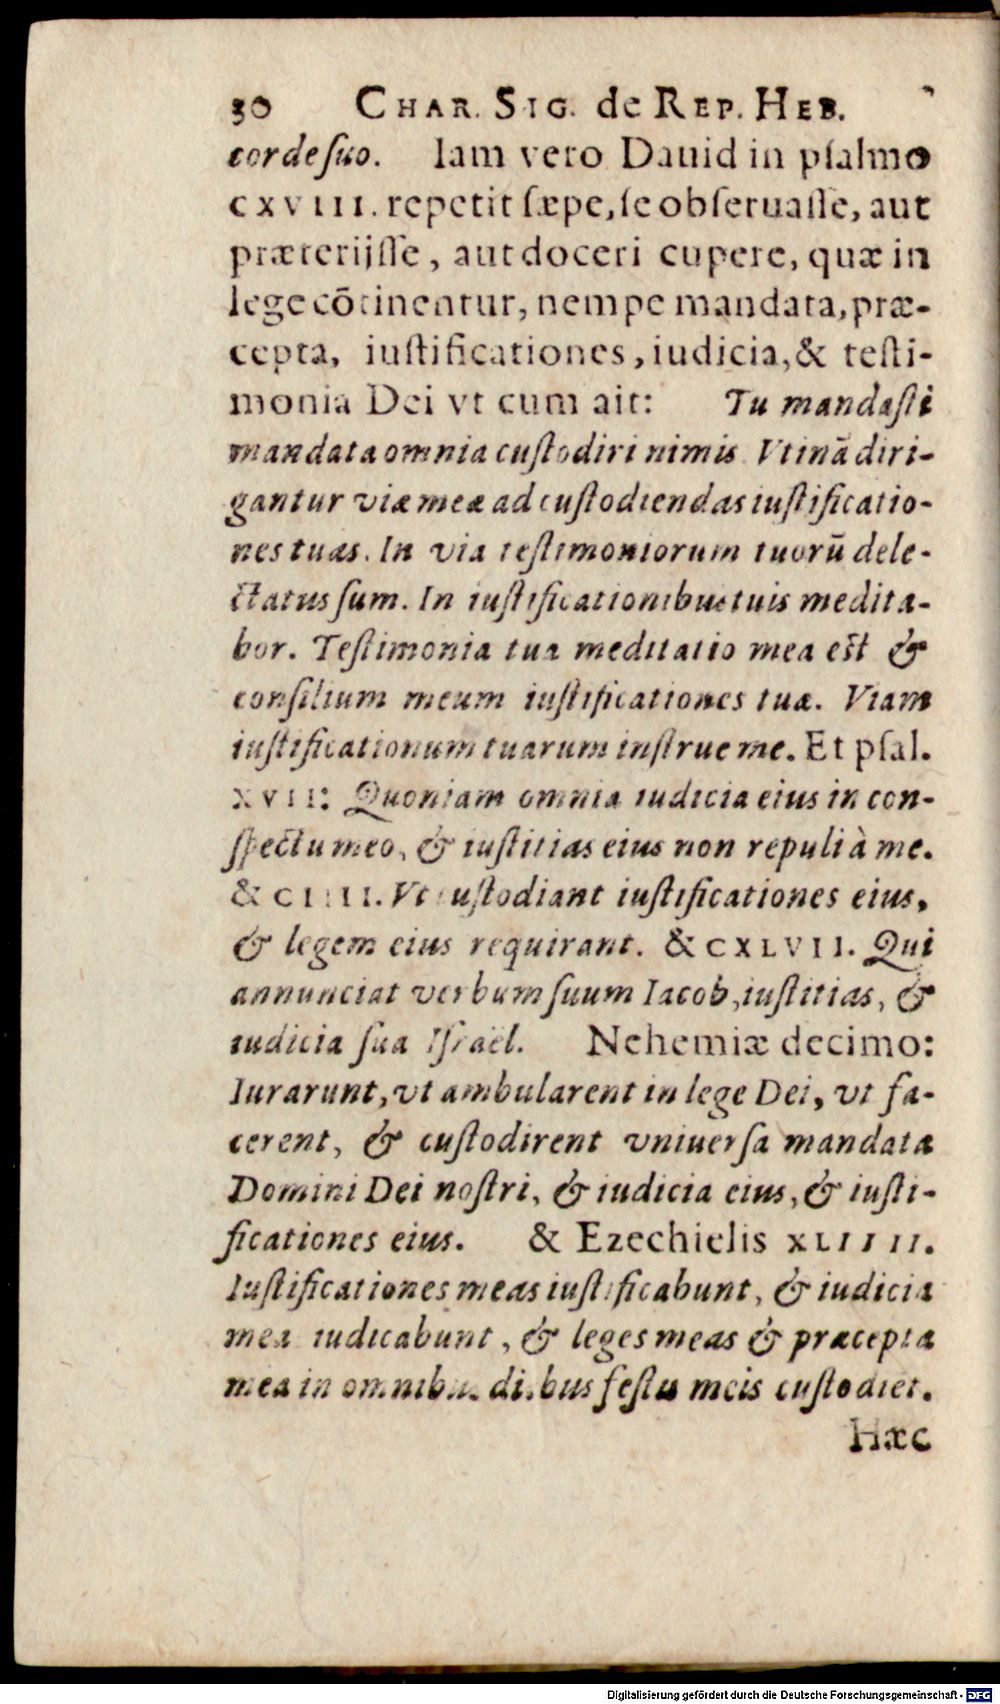 30 CHAR. SIG. de REP. HEB.
corde ſuo. Iam vero Dauid in pſalmo
CXVIII. repetit ſæpe, ſe obſeruaſſe, aut
præterijſſe, aut doceri cupere, quæ in
lege cōtinentur, nempe mandata, præ-
cepta, iuſtificationes, iudicia, & teſti-
monia Dei vt cum ait: Tu mandaſti
mandata omnia cuſtodiri nimis Vtinā diri-
gantur viæ meæ ad cuſtodiendas iuſtificatio-
nes tuas. In via teſtimoniorum tuorū dele-
ctatus ſum. In iuſtificationibus tuis medita-
bor. Teſtimonia tua meditatio mea eſt &
conſilium meum iuſtificationes tuæ. Viam
iuſtificationum tuarum inſtrue me. Et pſal.
XVII: Quoniam omnia iudicia eius in con-
ſpectu meo, & iuſtitias eius non repuli à me.
& CIIII. Vt cuſtodiant iuſtificationes eius,
& legem eius requirant. & CXLVII. Qui
annunciat verbum ſuum Iacob, iuſtitias, &
iudicia ſua Iſraël. Nehemiæ decimo:
Iurarunt, vt ambularent in lege Dei, vt fa-
cerent, & cuſtodirent vniuerſa mandata
Domini Dei noſtri, & iudicia eius, & iuſti-
ficationes eius. & Ezechielis XLIIII.
Iuſtificationes meas iuſtificabunt, & iudicia
mea iudicabunt, & leges meas & præcepta
mea in omnibus diebus feſtis meis cuſtodiet.
Hæc
Digitalisierung gefördert durch die Deutsche Forschungsgemeinschaft - DFG